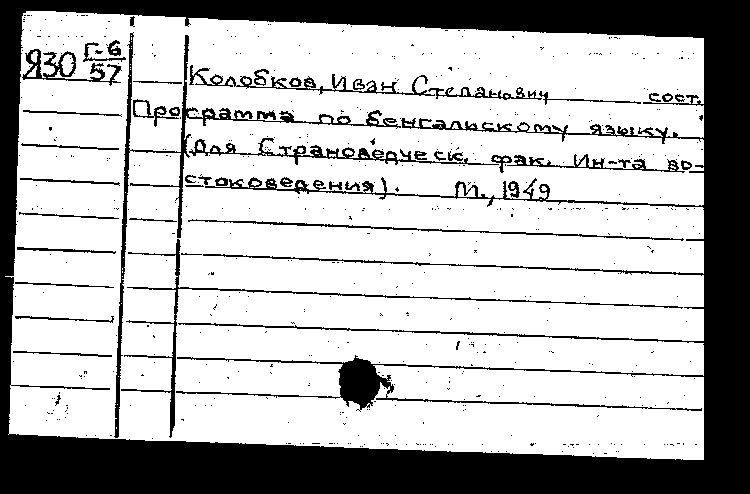 Я30 Г-6/57
Колобков, Иван Степанович сост.
Программа по бенгальскому языку.
(Для Страноведческ. фак. Ин-та во-
стоковедения). М., 1949